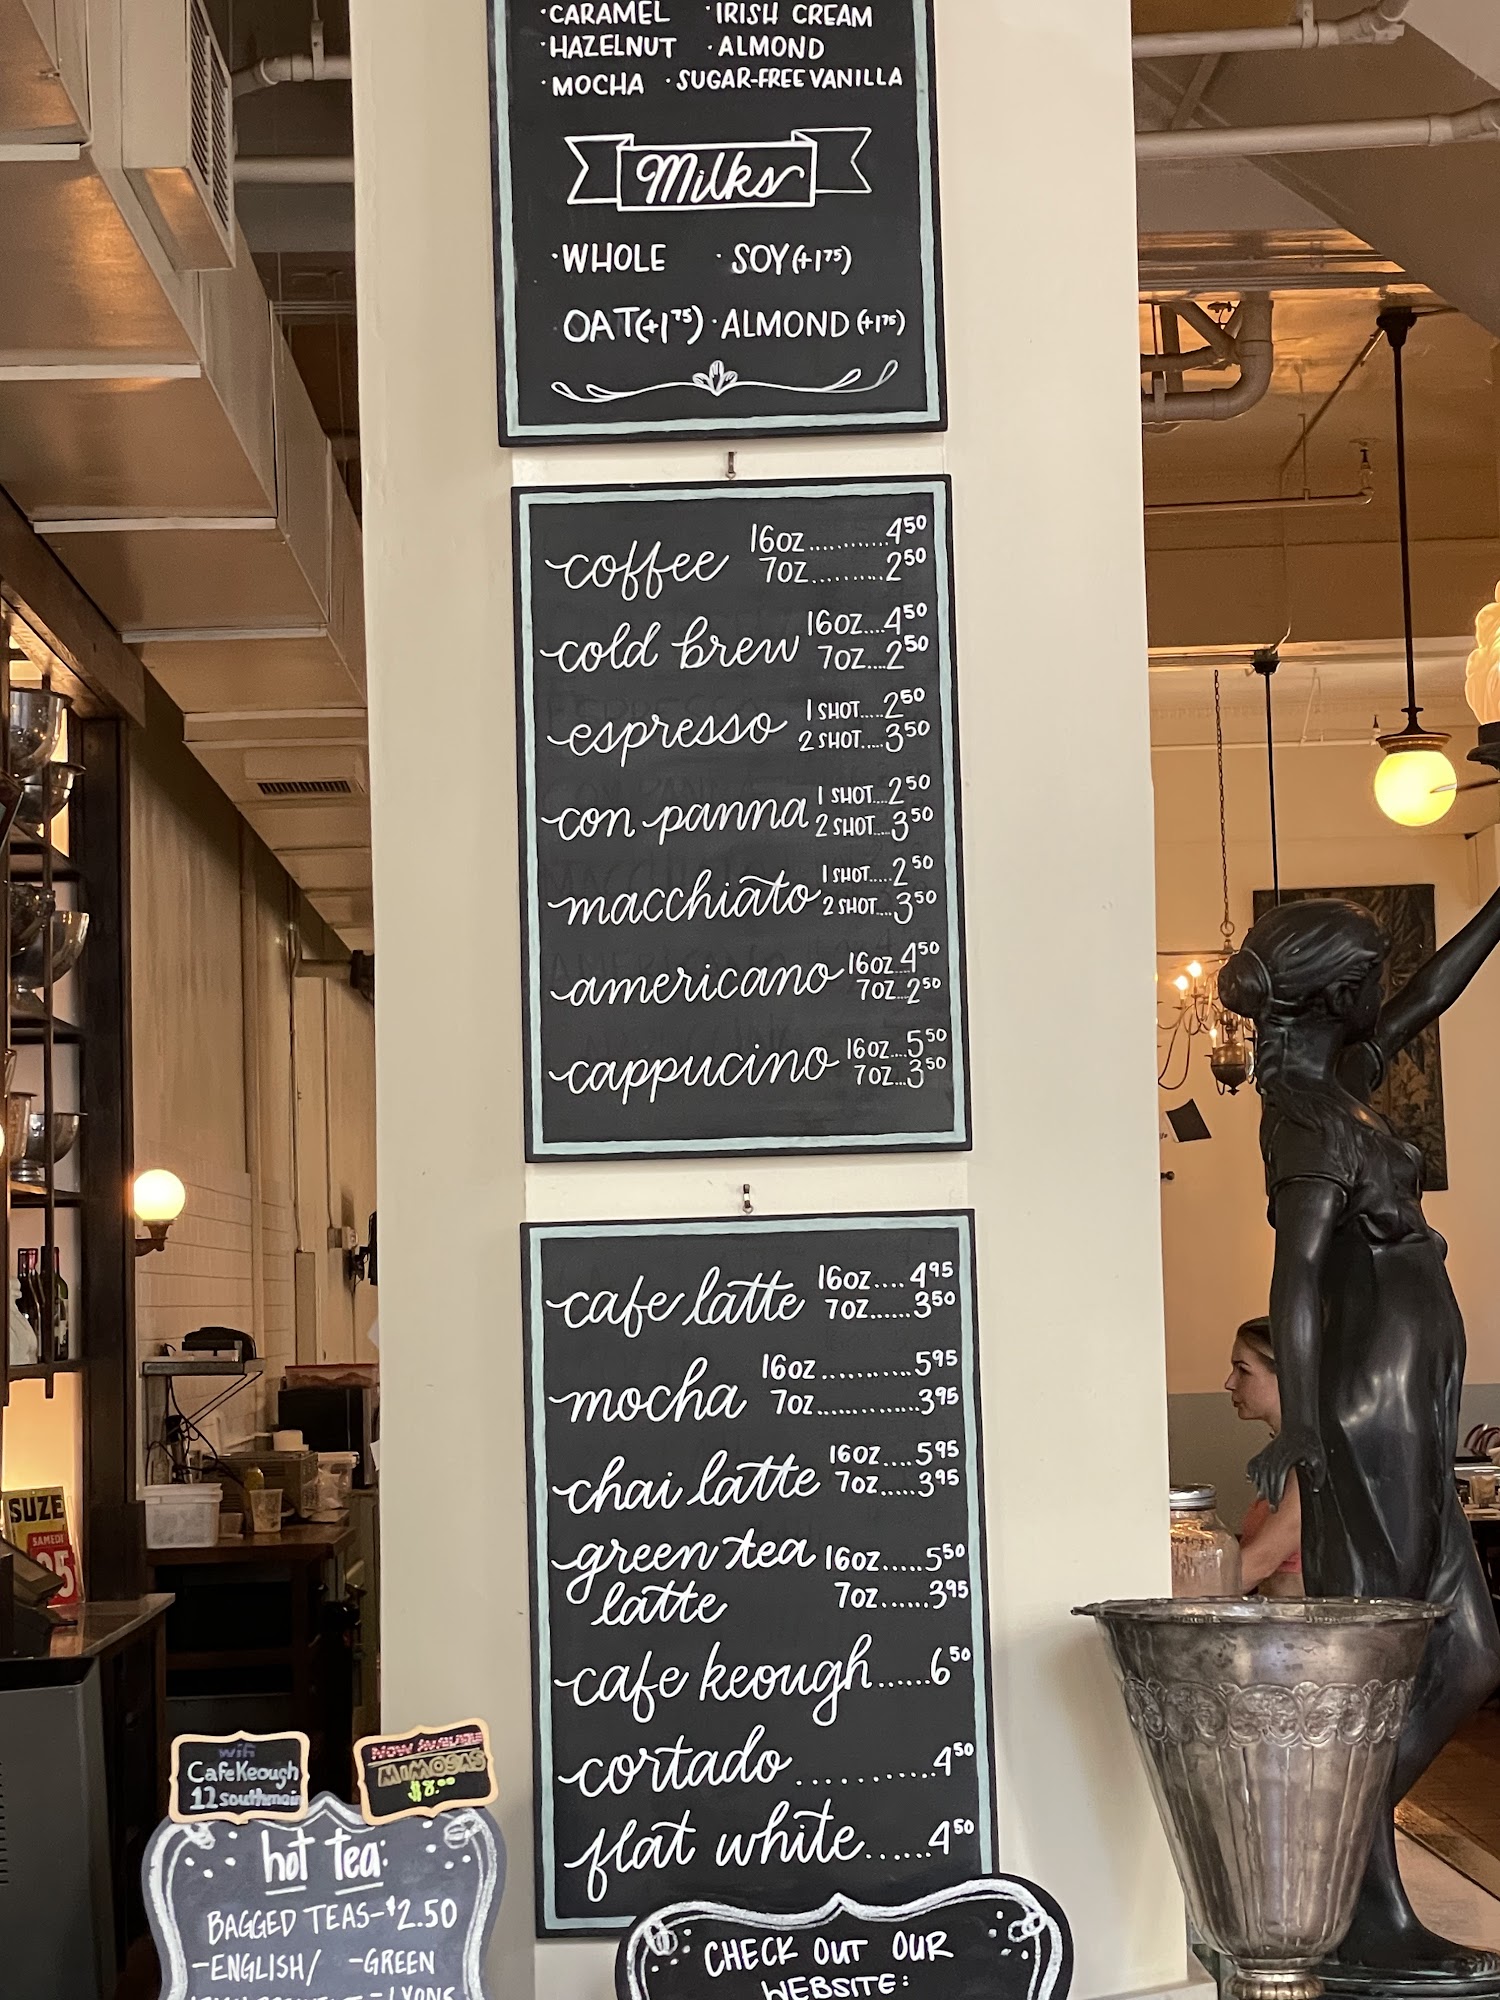 ·CARAMEL ·IRISH CREAM
·HAZELNUT ·ALMOND
·MOCHA ·SUGAR-FREE VANILLA
Milks
·WHOLE ·SOY (+1.75)
OAT (+1.75) ·ALMOND (+1.75)
coffee 16oz............4.50
7oz..........2.50
cold brew 16oz....4.50
7oz...2.50
espresso 1 SHOT....2.50
2 SHOT....3.50
con panna 1 SHOT...2.50
2 SHOT...3.50
macchiato 1 SHOT.....2.50
2 SHOT...3.50
americano 16oz..4.50
7oz..2.50
cappucino 16oz....5.50
7oz...3.50
cafe latte 16oz....4.95
7oz......3.50
mocha 16oz...........5.95
7oz.............3.95
chai latte 16oz....5.95
7oz.....3.95
green tea 16oz.....5.50
latte 7oz......3.95
cafe keough......6.50
cortado...........4.50
flat white......4.50
wifi
CafeKeough
12southmain
NOW AVAILABLE
MIMOSAS
$8.00
hot tea:
BAGGED TEAS-$2.50
-ENGLISH/ -GREEN
CHECK OUT OUR
WEBSITE:
SUZE
SAMEDI